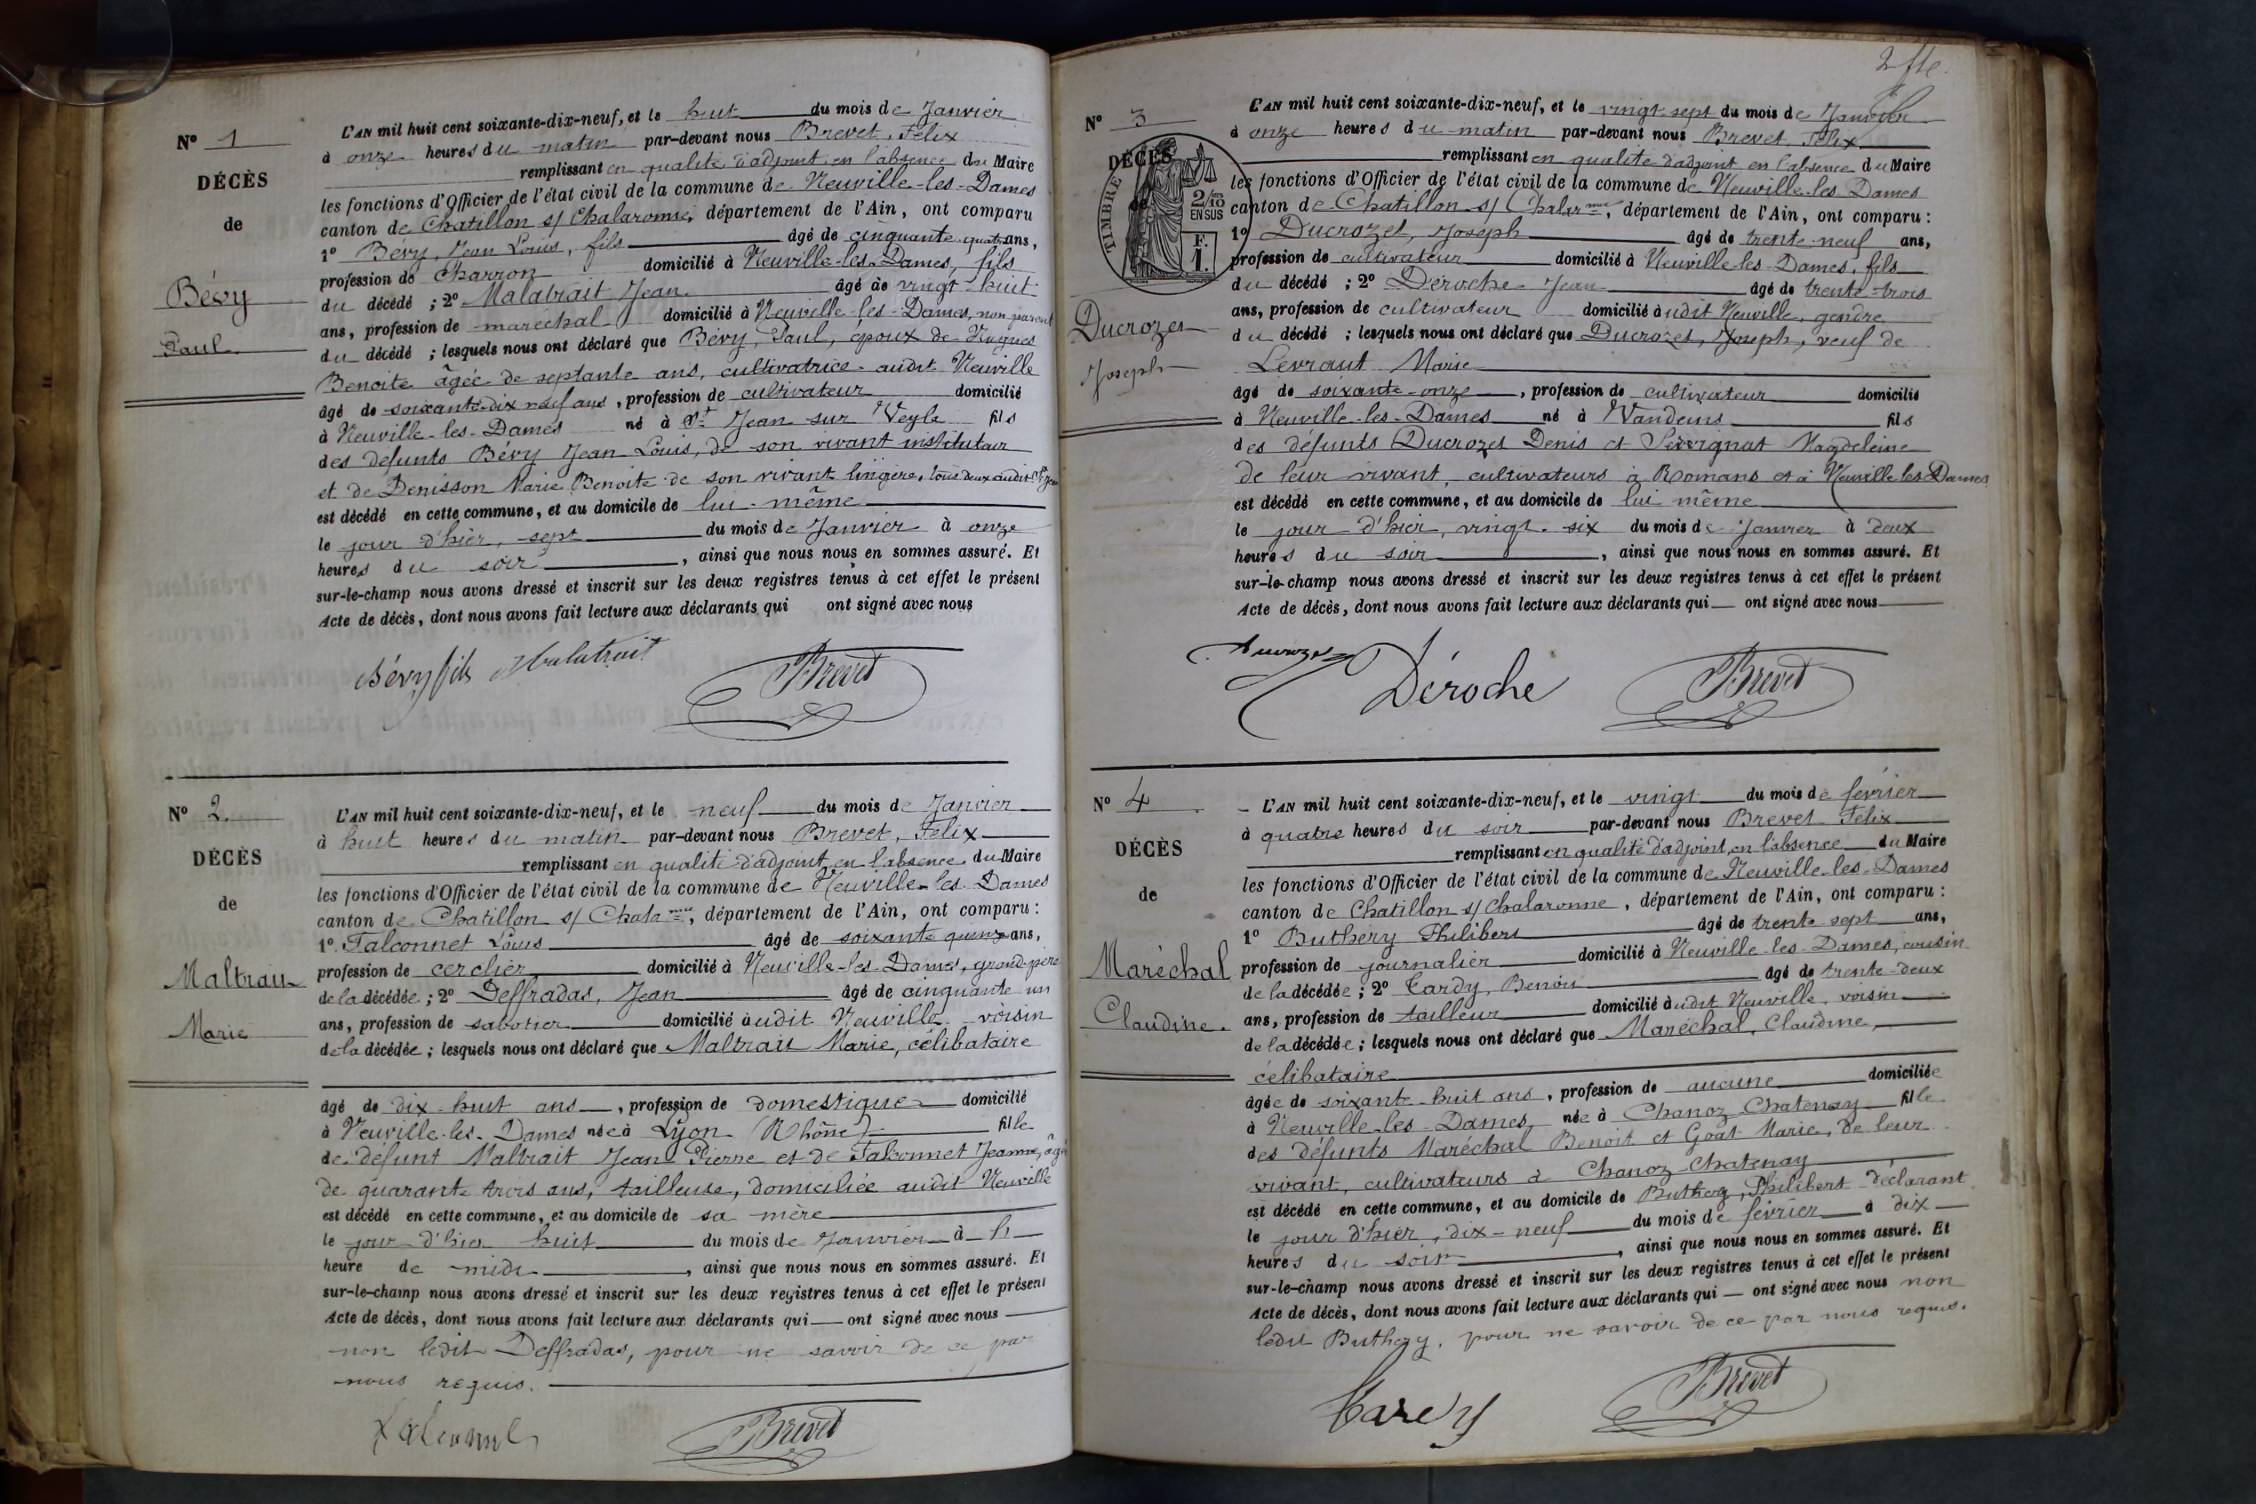 Nº 1
DÉCÈS
de
Bévy
Paul
L'AN mil huit cent soixante-dix-neuf, et le huit du mois de Janvier
à onze heures du matin par-devant nous Brevet, Félix
remplissant en qualité d'adjoint en l'absence du Maire
les fonctions d'Officier de l'état civil de la commune de Neuville-les-Dames
canton de Chatillon s/ Chalaronne, département de l'Ain, ont comparu
1º Bévy, Jean Louis, fils âgé de cinquante quatre ans,
profession de Charron domicilié à Neuville-les-Dames, fils
du décédé ; 2º Malatrait Jean âgé de vingt-huit
ans, profession de maréchal domicilié à Neuville-les-Dames, non parent
du décédé ; lesquels nous ont déclaré que Bévy, Paul, époux de
Benoite âgée de septante ans, cultivatrice audit Neuville
âgé de soixante-dix neuf ans, profession de cultivateur domicilié
à Neuville-les-Dames né à St Jean sur Veyle fils
des défunts Bévy Jean Louis, de son vivant instituteur
et de Denisson Marie Benoite de son vivant lingère, tous deux audit St Jean
est décédé en cette commune, et au domicile de lui-même
le jour d'hier, sept du mois de Janvier à onze
heures du soir, ainsi que nous nous en sommes assuré. Et
sur-le-champ nous avons dressé et inscrit sur les deux registres tenus à cet effet le présent
Acte de décès, dont nous avons fait lecture aux déclarants qui ont signé avec nous
Bévy fils Malatrait Brevet
Nº 2.
DÉCÈS
de
Maltrait
Marie
L'AN mil huit cent soixante-dix-neuf, et le neuf du mois de Janvier
à huit heures du matin par-devant nous Brevet, Félix
remplissant en qualité d'adjoint en l'absence du Maire
les fonctions d'Officier de l'état civil de la commune de Neuville-les-Dames
canton de Chatillon s/ Chalanne, département de l'Ain, ont comparu :
1º Falconnet Louis âgé de soixante quinze ans,
profession de cerclier domicilié à Neuville-les-Dames, grand-père
de la décédée ; 2º Deffradas, Jean âgé de cinquante un
ans, profession de sabotier domicilié audit Neuville voisin
de la décédée ; lesquels nous ont déclaré que Maltrait Marie, célibataire
âgé de dix-huit ans, profession de domestique domicilié
à Neuville-les-Dames née à Lyon (Rhône) fille
de défunt Maltrait Jean Pierre et de Falconnet Jeanne, âgée
de quarante trois ans, tailleuse, domiciliée audit Neuville
est décédé en cette commune, et au domicile de sa mère
le jour d'hier huit du mois de Janvier à h
heure de midi, ainsi que nous nous en sommes assuré. Et
sur-le-champ nous avons dressé et inscrit sur les deux registres tenus à cet effet le présent
Acte de décès, dont nous avons fait lecture aux déclarants qui ont signé avec nous
non ledit Deffradas, pour ne savoir de ce par
nous requis.
Falconnet Brevet
2 fle.
Nº 3
DÉCÈS
de
TIMBRE
2/10
EN SUS
F.
1.
Ducrozet
Joseph
L'AN mil huit cent soixante-dix-neuf, et le vingt-sept du mois de Janvier
à onze heures du matin par-devant nous Brevet Félix
remplissant en qualité d'adjoint en l'absence du Maire
les fonctions d'Officier de l'état civil de la commune de Neuville-les-Dames
canton de Chatillon s/ Chalarnne, département de l'Ain, ont comparu :
1º Ducrozet, Joseph âgé de trente-neuf ans,
profession de cultivateur domicilié à Neuville-les-Dames, fils
du décédé ; 2º Déroche Jean âgé de trente-trois
ans, profession de cultivateur domicilié audit Neuville, gendre
du décédé ; lesquels nous ont déclaré que Ducrozet, Joseph, veuf de
Levraut Marie
âgé de soixante-onze, profession de cultivateur domicilié
à Neuville-les-Dames né à Vandeins fils
des défunts Ducrozet Denis et Servignat Magdeleine
de leur vivant, cultivateurs à Romans et à Neuville les Dames
est décédé en cette commune, et au domicile de lui même
le jour d'hier, vingt-six du mois de Janvier à deux
heures du soir, ainsi que nous nous en sommes assuré. Et
sur-le-champ nous avons dressé et inscrit sur les deux registres tenus à cet effet le présent
Acte de décès, dont nous avons fait lecture aux déclarants qui ont signé avec nous
Ducrozet Déroche Brevet
Nº 4
DÉCÈS
de
Maréchal
Claudine.
L'AN mil huit cent soixante-dix-neuf, et le vingt du mois de février
à quatre heures du soir par-devant nous Brevet Félix
remplissant en qualité d'adjoint en l'absence du Maire
les fonctions d'Officier de l'état civil de la commune de Neuville-les-Dames
canton de Chatillon s/ Chalaronne, département de l'Ain, ont comparu :
1º Buthery Philibert âgé de trente sept ans,
profession de journalier domicilié à Neuville-les-Dames, cousin
de la décédée ; 2º Tardy, Benoit âgé de trente-deux
ans, profession de tailleur domicilié audit Neuville, voisin
de la décédée ; lesquels nous ont déclaré que Maréchal, Claudine,
célibataire
âgée de soixante-huit ans, profession de aucune domiciliée
à Neuville-les-Dames née à Chanoz-Chatenay fille
des défunts Maréchal Benoit et Goat Marie, de leur
vivant, cultivateurs à Chanoz-Chatenay
est décédé en cette commune, et au domicile de Buthery, Philibert déclarant
le jour d'hier, dix-neuf du mois de février à dix
heures du soir, ainsi que nous nous en sommes assuré. Et
sur-le-champ nous avons dressé et inscrit sur les deux registres tenus à cet effet le présent
Acte de décès, dont nous avons fait lecture aux déclarants qui ont signé avec nous non
ledit Buthery, pour ne savoir de ce par nous requis.
Tardy Brevet